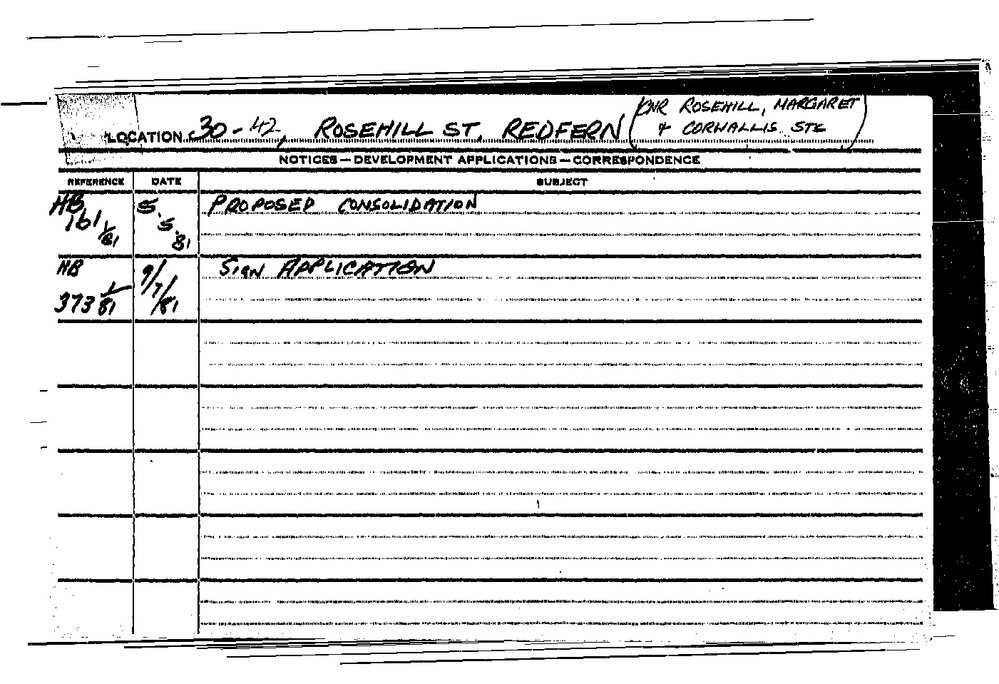 LOCATION 30-42, ROSEHILL ST. REDFERN (CNR ROSEHILL, MARGARET
& CORNWALLIS STS)
NOTICES—DEVELOPMENT APPLICATIONS—CORRESPONDENCE
REFERENCE DATE SUBJECT
HB 161/81 5.5.81 PROPOSED CONSOLIDATION
HB 373/81 9/7/81 SIGN APPLICATION